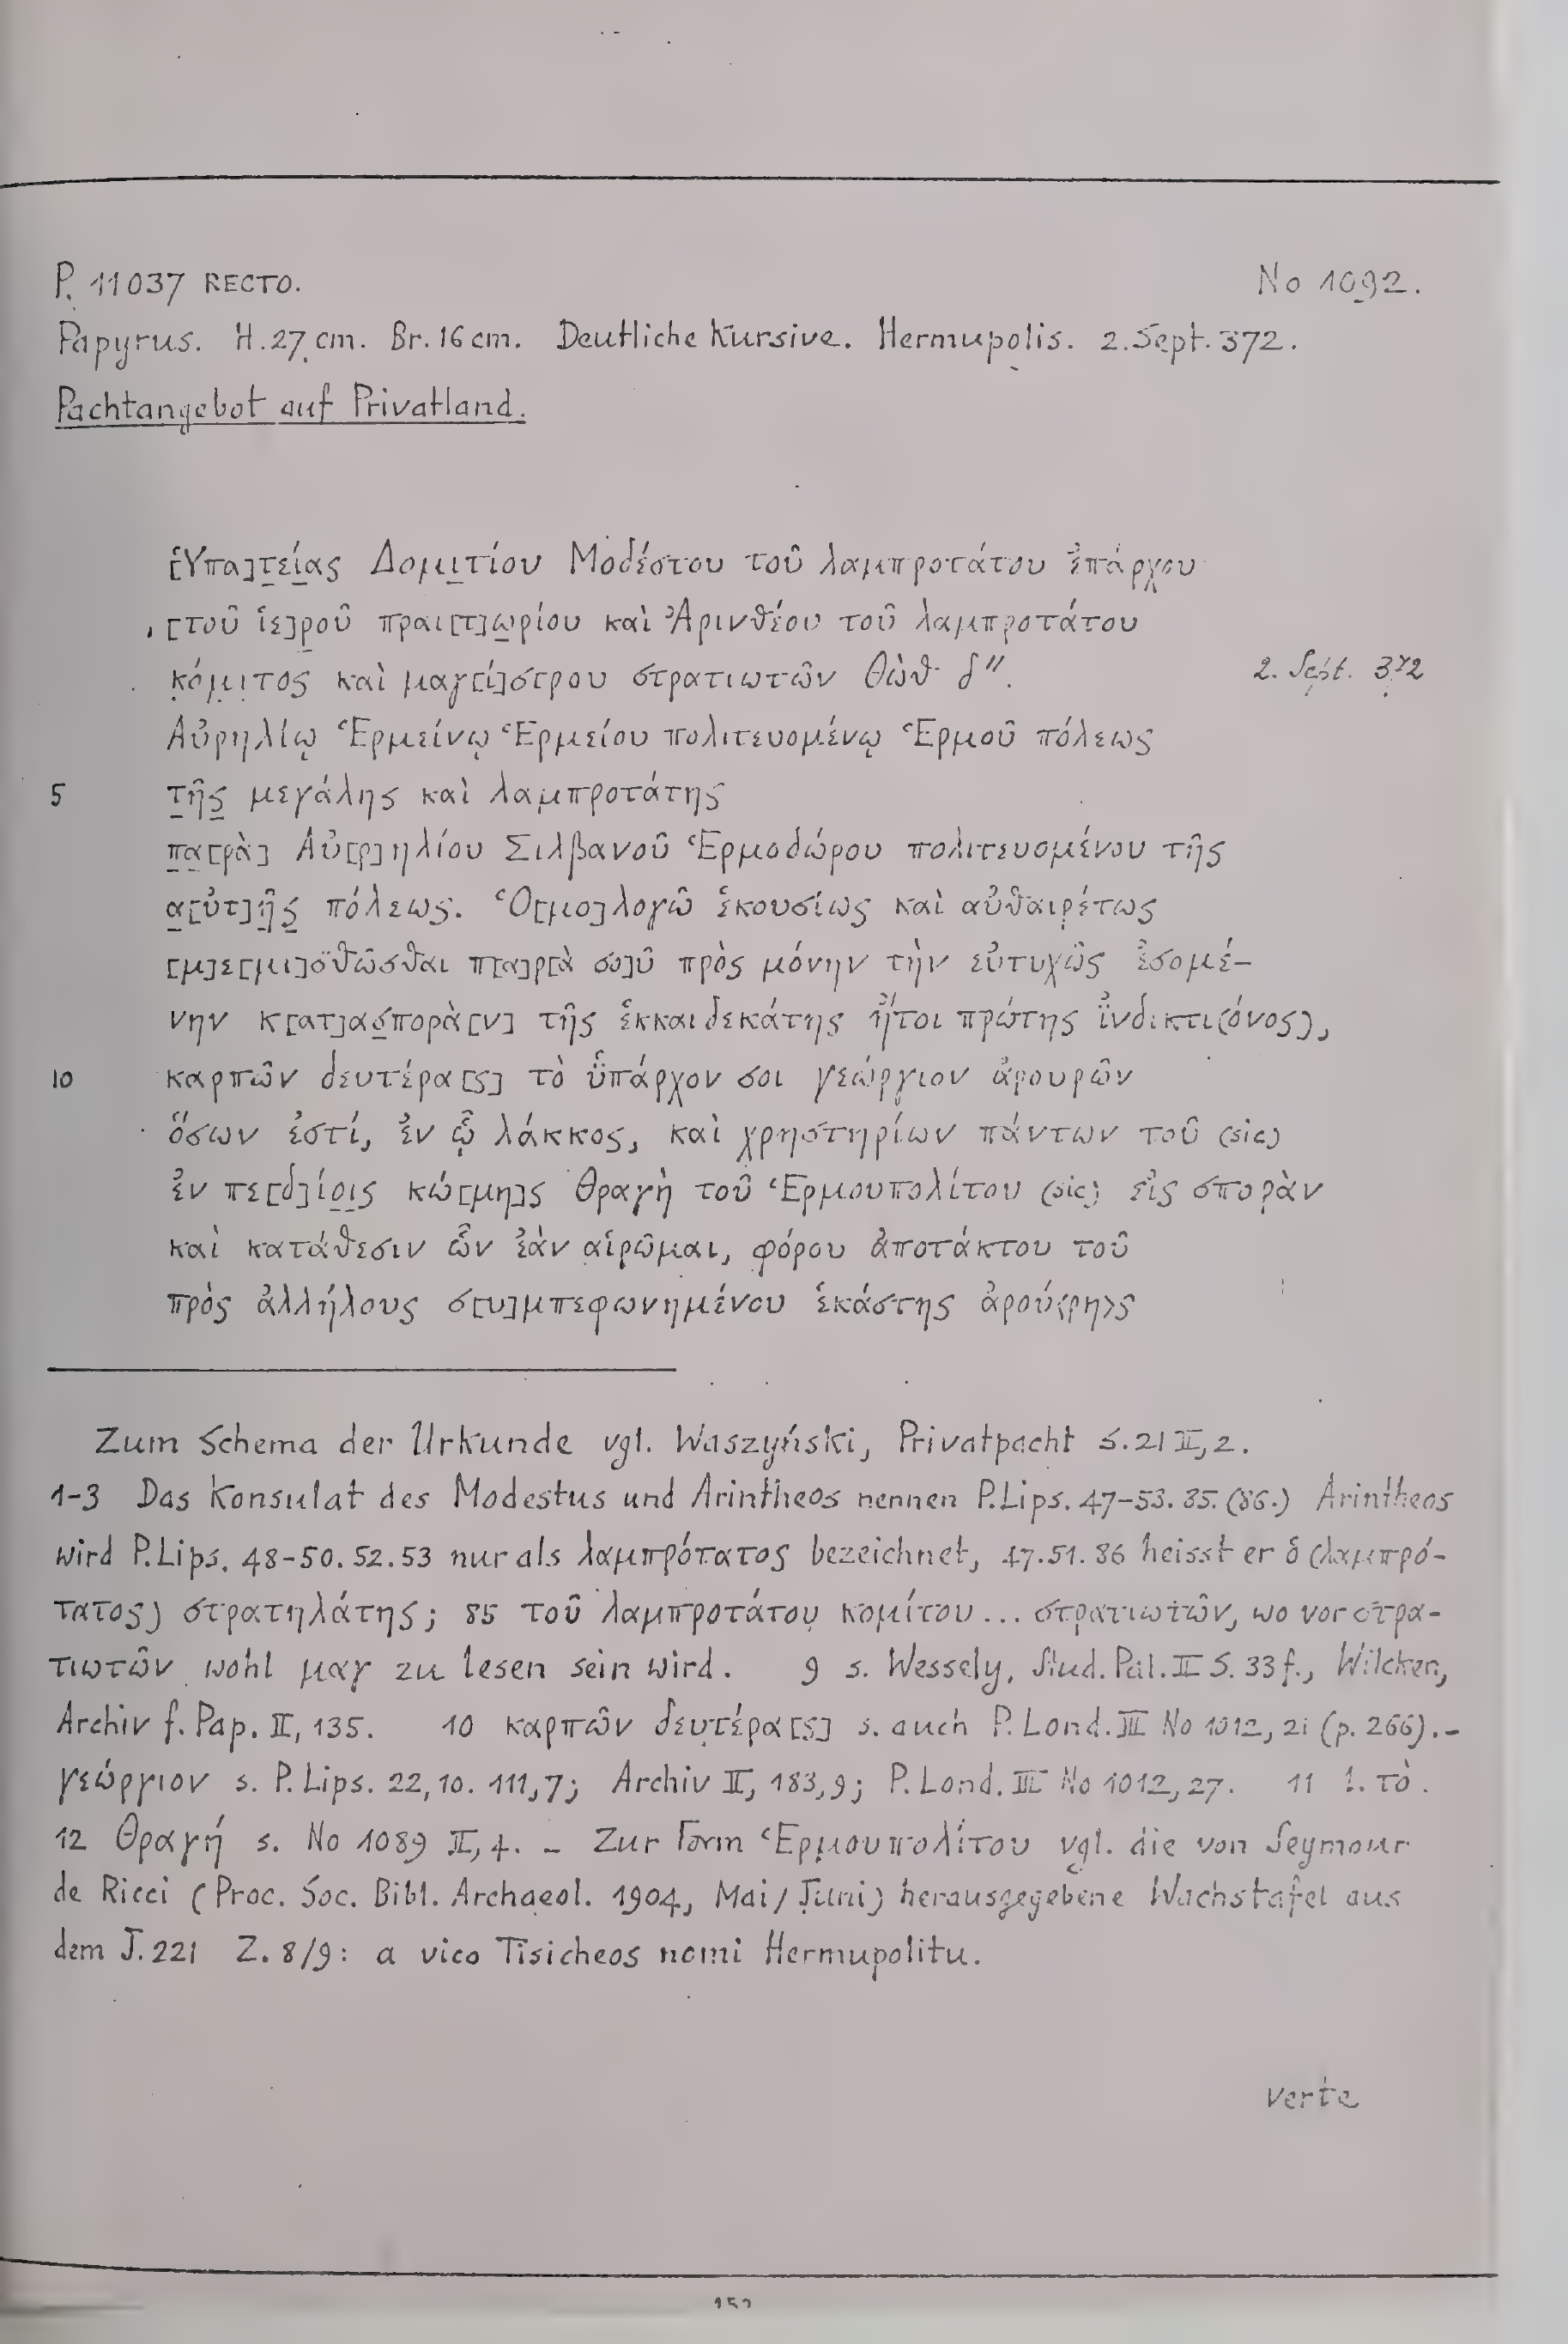 P. 11037 RECTO. No 1092.
Papyrus. H. 27 cm. Br. 16 cm. Deutliche Kursive. Hermupolis. 2. Sept. 372.
Pachtangebot auf Privatland.
[Ὑπα]τ̣ε̣ί̣ας Δομι̣τίου Μοδέστου τοῦ λαμπροτάτου ἐπάρχου
[τοῦ ἱε]ρ̣οῦ πραι[τ]ω̣ρίου καὶ Ἀρινθέου τοῦ λαμπροτάτου
κόμιτος καὶ μαγ[ί]στρου στρατιωτῶν Θὼθ δ″. 2. Sept. 372
Αὐρηλίῳ Ἑρμείνῳ Ἑρμείου πολιτευομένῳ Ἑρμοῦ πόλεως
5 τ̣ῆς̣ μεγάλης καὶ λαμπροτάτης
π̣α̣[ρὰ] Αὐ[ρ]ηλίου Σιλβανοῦ Ἑρμοδώρου πολιτευομένου τῆς
α̣[ὐτ]ῆ̣ς̣ πόλεως. Ὁ[μο]λογῶ ἑκουσίως καὶ αὐθαιρέτως
[μ]ε[μι]σθῶσθαι π[α]ρ[ὰ σο]ῦ πρὸς μόνην τὴν εὐτυχῶς ἐσομέ-
νην κ[ατ]ασ̣πορὰ[ν] τῆς ἑκκαιδεκάτης ἤτοι πρώτης ἰ̈νδικτι(όνος),
10 καρπῶν δευτέρα[ς] τὸ ὑ̈πάρχον σοι γεώργιον ἀρουρῶν
ὅσων ἐστί, ἐν ᾧ λάκκος, καὶ χρηστηρίων πάντων τοῦ (sic)
ἐν πε[δ]ίο̣ι̣ς κώ[μη]ς Θραγὴ τοῦ Ἑρμουπολίτου (sic) εἰς σπορὰν
καὶ κατάθεσιν ὧν ἐὰν αἱρῶμαι, φόρου ἀποτάκτου τοῦ
πρὸς ἀλλήλους σ[υ]μπεφωνημένου ἑκάστης ἀρού<ρη>ς
Zum Schema der Urkunde vgl. Waszyński, Privatpacht S. 21 II, 2.
1-3 Das Konsulat des Modestus und Arintheos nennen P. Lips. 47-53. 85. (86.) Arintheos
wird P. Lips. 48-50. 52. 53 nur als λαμπρότατος bezeichnet, 47. 51. 86 heisst er ὁ (λαμπρό-
τατος) στρατηλάτης; 85 τοῦ λαμπροτάτου κομίτου... στρατιωτῶν, wo vor στρα-
τιωτῶν wohl μαγ zu lesen sein wird. 9 s. Wessely, Stud. Pal. II S. 33 f., Wilcken,
Archiv f. Pap. II, 135. 10 καρπῶν δευτέρα[ς] s. auch P. Lond. III No 1012, 21 (p. 266).-
γεώργιον s. P. Lips. 22, 10. 111, 7; Archiv II, 183, 9; P. Lond. III No 1012, 27. 11 l. τὸ.
12 Θραγή s. No 1089 II, 4. - Zur Form Ἑρμουπολίτου vgl. die von Seymour
de Ricci (Proc. Soc. Bibl. Archaeol. 1904, Mai / Juni) herausgegebene Wachstafel aus
dem J. 221 Z. 8/9: a vico Tisicheos nomi Hermupolitu.
verte